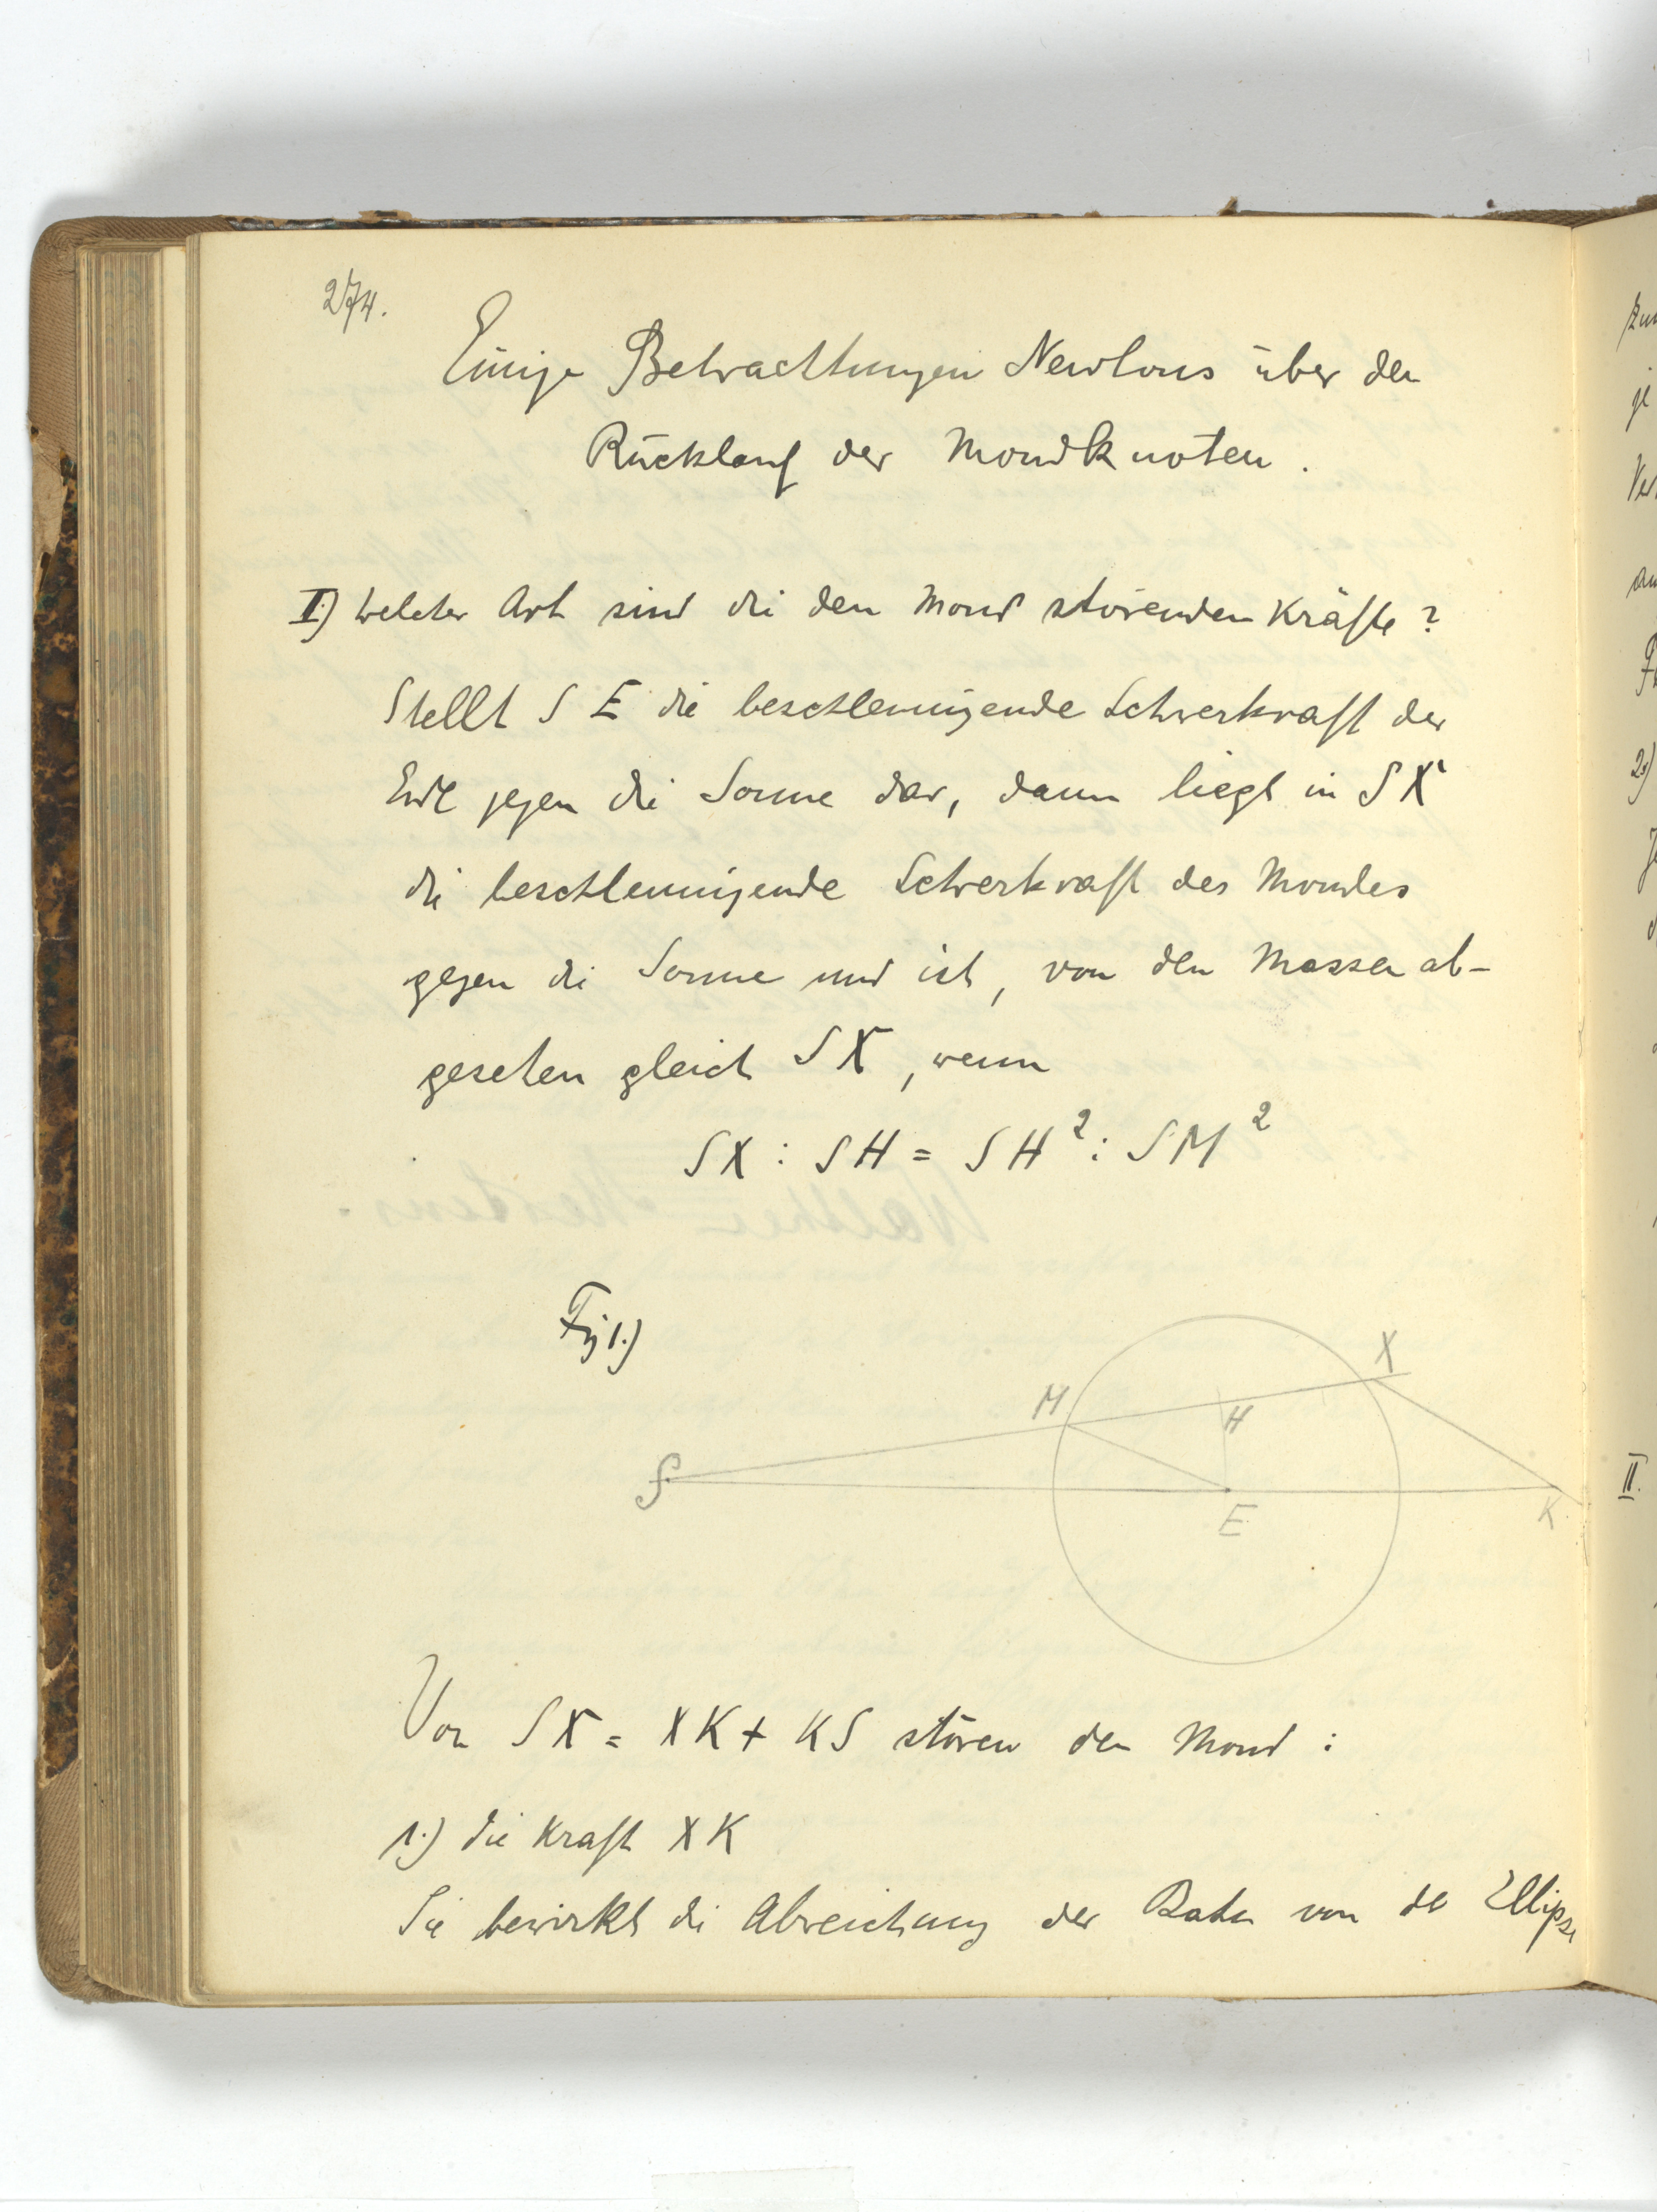 274.
Einige Betrachtungen Newtons über den
Rücklauf der Mondknoten.
I.) Welcher Art sind die den Mond störenden Kräfte?
Stellt S E die beschleunigende Schwerkraft der
Erde gegen die Sonne dar, dann liegt in SX
die beschleunigende Schwerkraft des Mondes
gegen die Sonne und ist, von den Massen ab-
gesehen gleich SX, wenn
SX : SH = SH² : SM²
Fig 1.)
M
H
X
S
E
K
Von SX = XK + KS stören den Mond:
1.) die Kraft XK
Sie bewirkt die Abweichung der Bahn von der Ellipse
2.)
II.